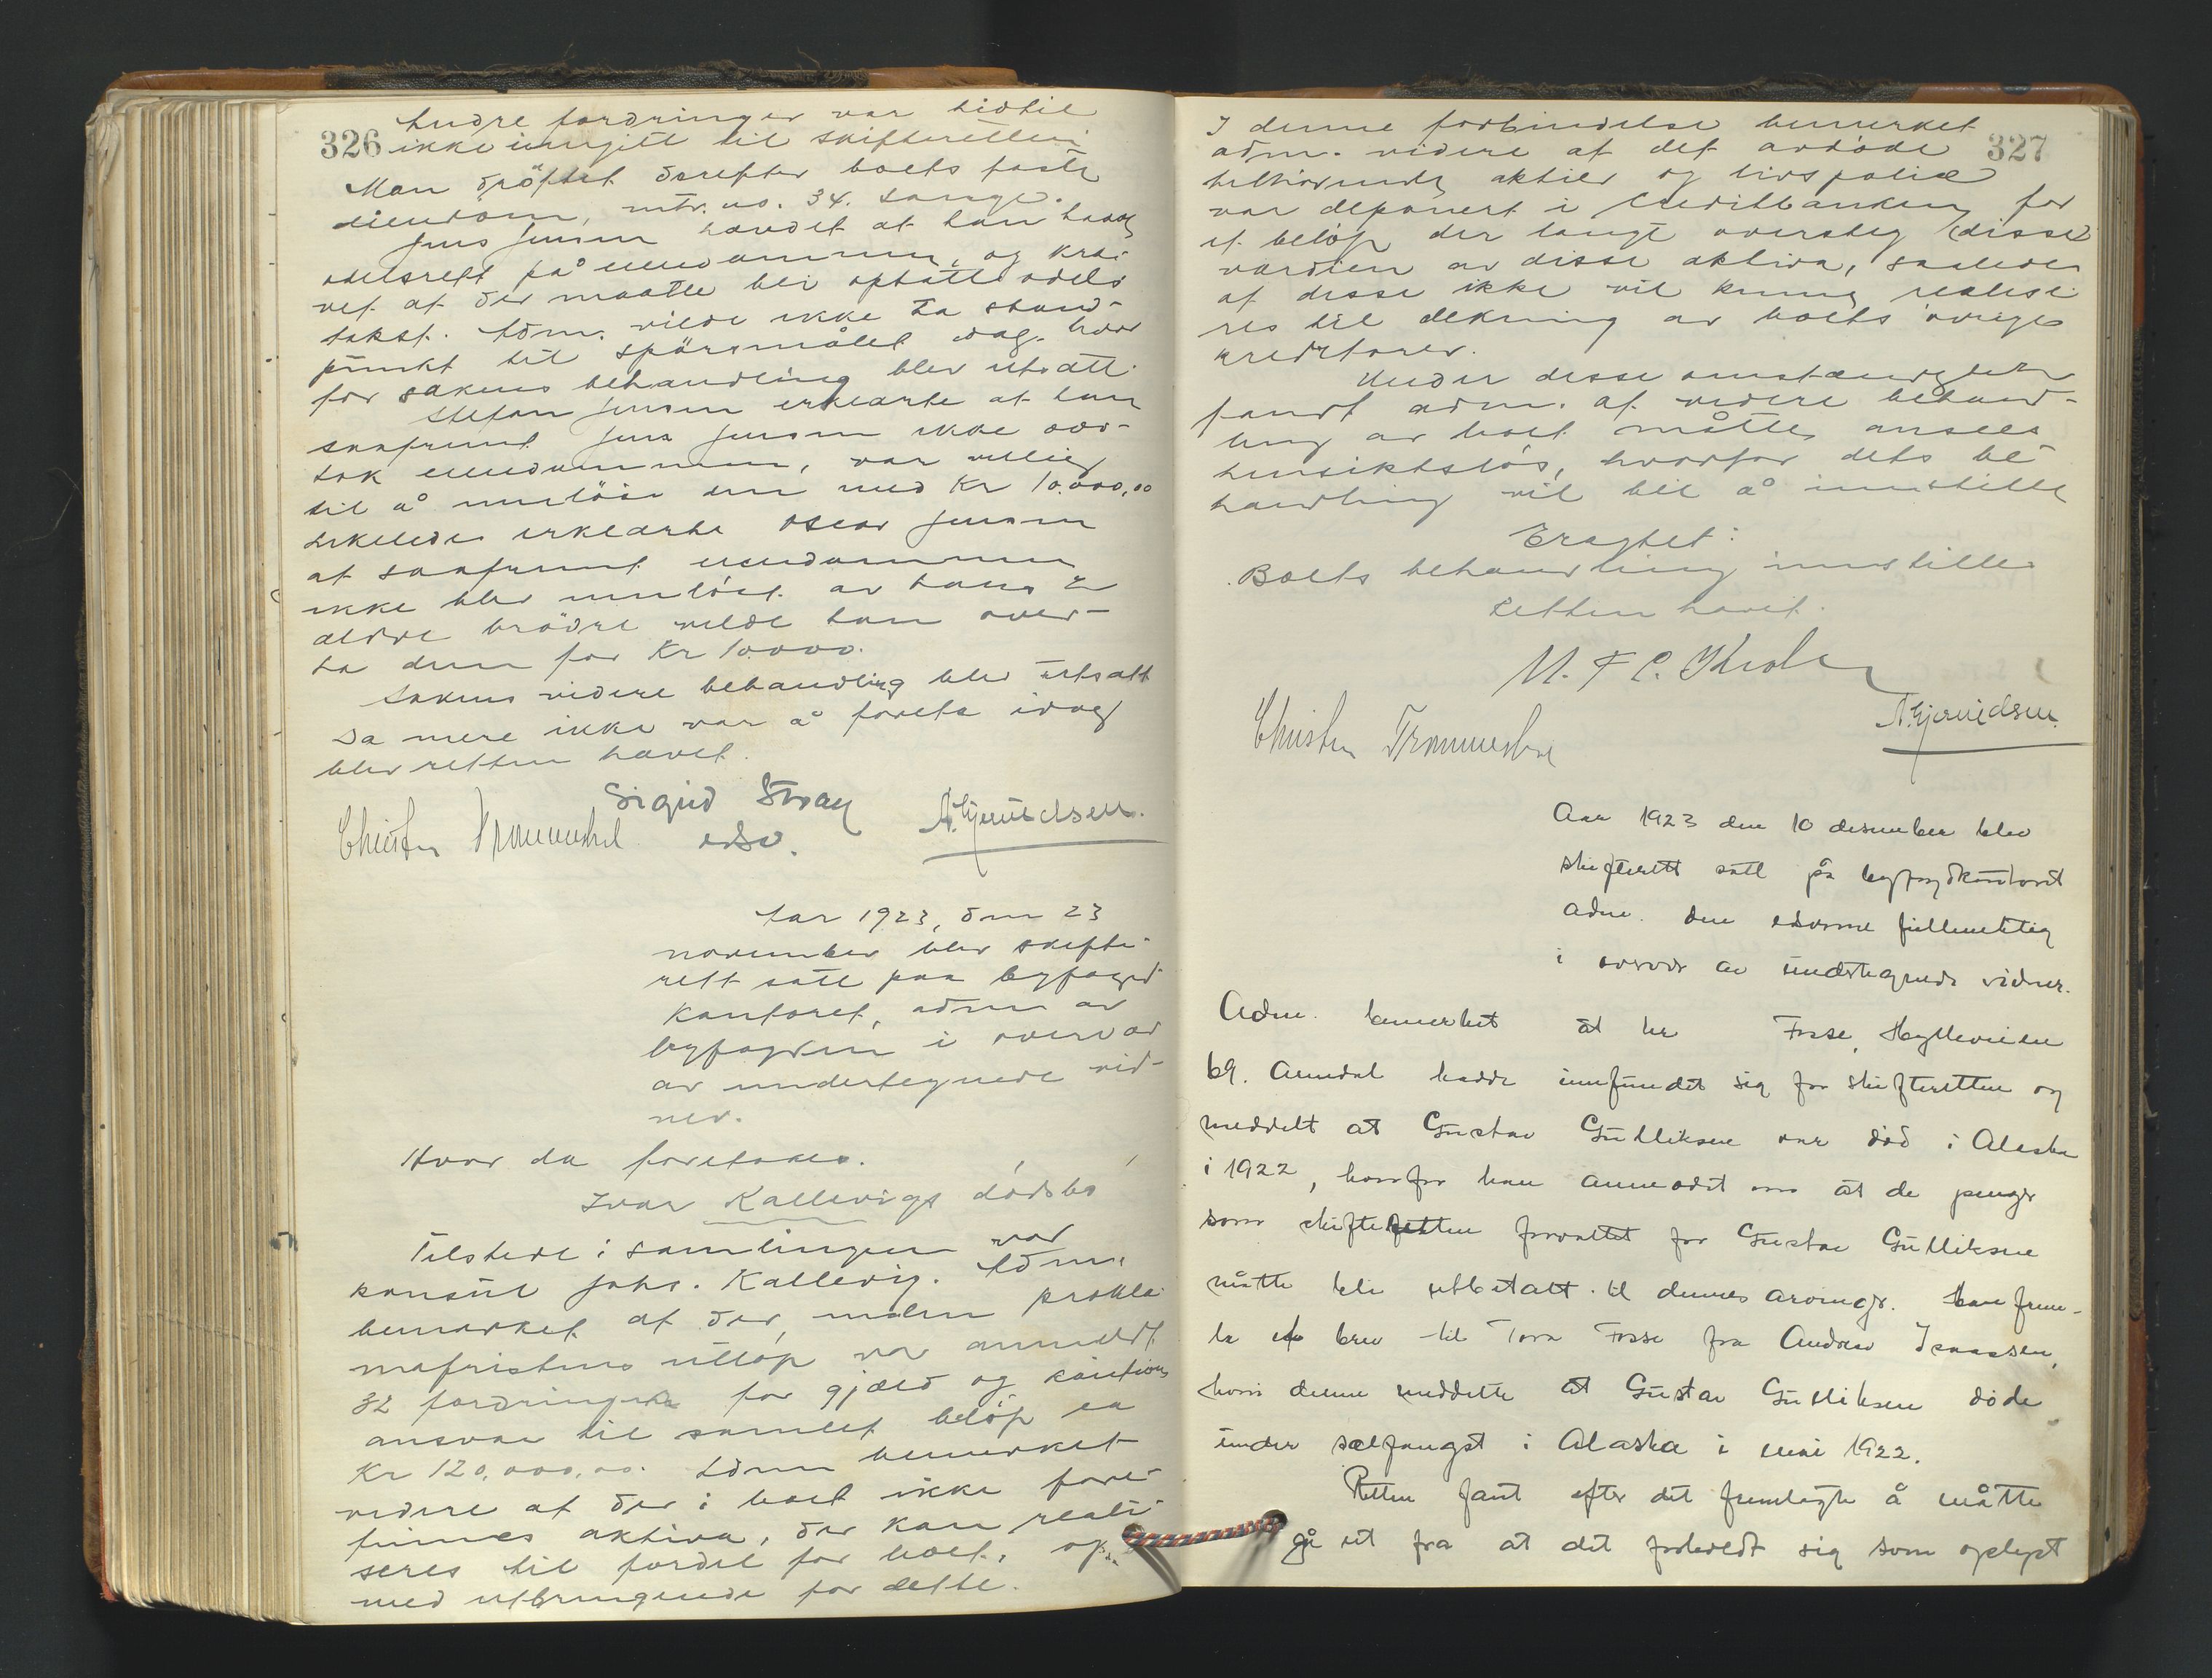 326
Andre fordringer var hidtil
ikke inngitt til skifteretten.
Man drøftet derefter boets faste
eiendom, mtr. no. 34. Lange.
Jens Jensen hævdet at han havde
odelsrett på eiendommen, og kræ-
vet at der maatte bli optatt odels
takst. Adm. vilde ikke ta stand-
punkt til spørsmålet idag, hvor
for sakens behandling blev utsatt.
Stefan Jensen erklærte at han
saafremt Jens Jensen ikke over-
tok eiendommen, var villig
til å innløse den med Kr 10.000,00
Likeledes erklærte Oscar Jensen
at saafremt eiendommen
ikke blev innløst av hans 2
ældre brødre vilde han over-
ta den for Kr 10.000.
Sakens videre behandling blev utsatt
Da mere ikke var å foreta idag
blev retten hævet.
Sigrid Stray
edsv.
Christen Trommestad
N. Gjeruldsen.
Aar 1923, den 23
november blev skifte-
rett satt paa byfogd-
kontoret, adm av
byfogden i overvær
av undertegnede vid-
ner.
Hvor da foretokes.
Ivar Kallevigs dødsbo
Tilstede i samlingen var
konsul Johs. Kallevig. Adm.
bemerket at der, inden prokla-
mafristens utløp var anmeldt
32 fordringer for gjæld og kautions
ansvar til samlet beløp ca
Kr 120.000,00. Adm bemerket
videre at der i boet ikke fore-
finnes aktiva, der kan reali-
seres til fordel for boet, og
med utbringende for dette.
327
I denne forbindelse bemerket
adm. videre at det avdøde
tilhørende aktier og livspolice
var deponert i Creditbanken for
et beløp der langt oversteg (disse)
værdien av disse aktiva, saaledes
at disse ikke vil kunne realise-
res til dekning av boets øvrige
kreditorer.
Under disse omstændigheter
fandt adm. at videre behand-
ling av boet måtte ansees
hensiktsløs, hvorfor dets be-
handling vil bli å innstille
Eragtet:
Boets behandling innstilles
Retten hævet.
Christen Trommestad
N. Gjeruldsen.
Aar 1923 den 10 desember blev
skifterett satt på byfogdkontoret
adm. den edsvorne fullmektig
i overvær av undertegnede vidner.
Adm. bemerket at hr Fosse, Hylleveien
69. Arendal hadde innfundet sig for skifteretten og
meddelt at Gustav Gulliksen var død i Alaska
i 1922, hvorfor han anmodet om at de penger
som skifteretten forvaltet for Gustav Gulliksen
måtte bli utbetalt til dennes arvinger. Han frem-
la et brev til Tora Fosse fra Andrew Isaassen,
hvori denne meddelte at Gustav Gulliksen døde
under sælfangst i Alaska i mai 1922.
Retten fant efter det fremlagte å måtte
gå ut fra at det forholdt sig som oplyst